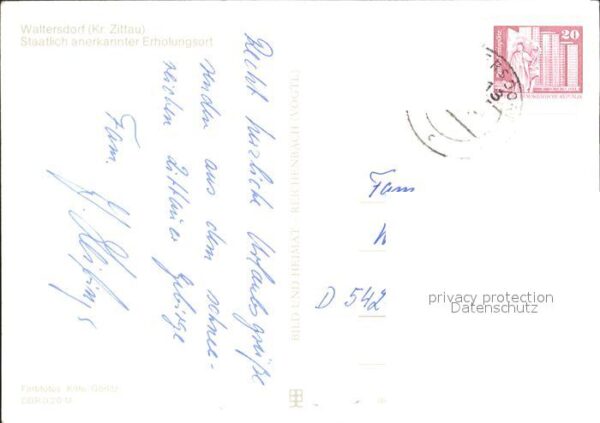 Waltersdorf (Kr. Zittau)
Staatlich anerkannter Erholungsort
Recht herzliche Urlaubsgrüße
senden aus dem schnee-
reichen Zittauer Gebirge
Fam.
BILD UND HEIMAT REICHENBACH (VOGTL)
20
Fam
D 542
privacy protection
Datenschutz
Farbfotos: Görlitz